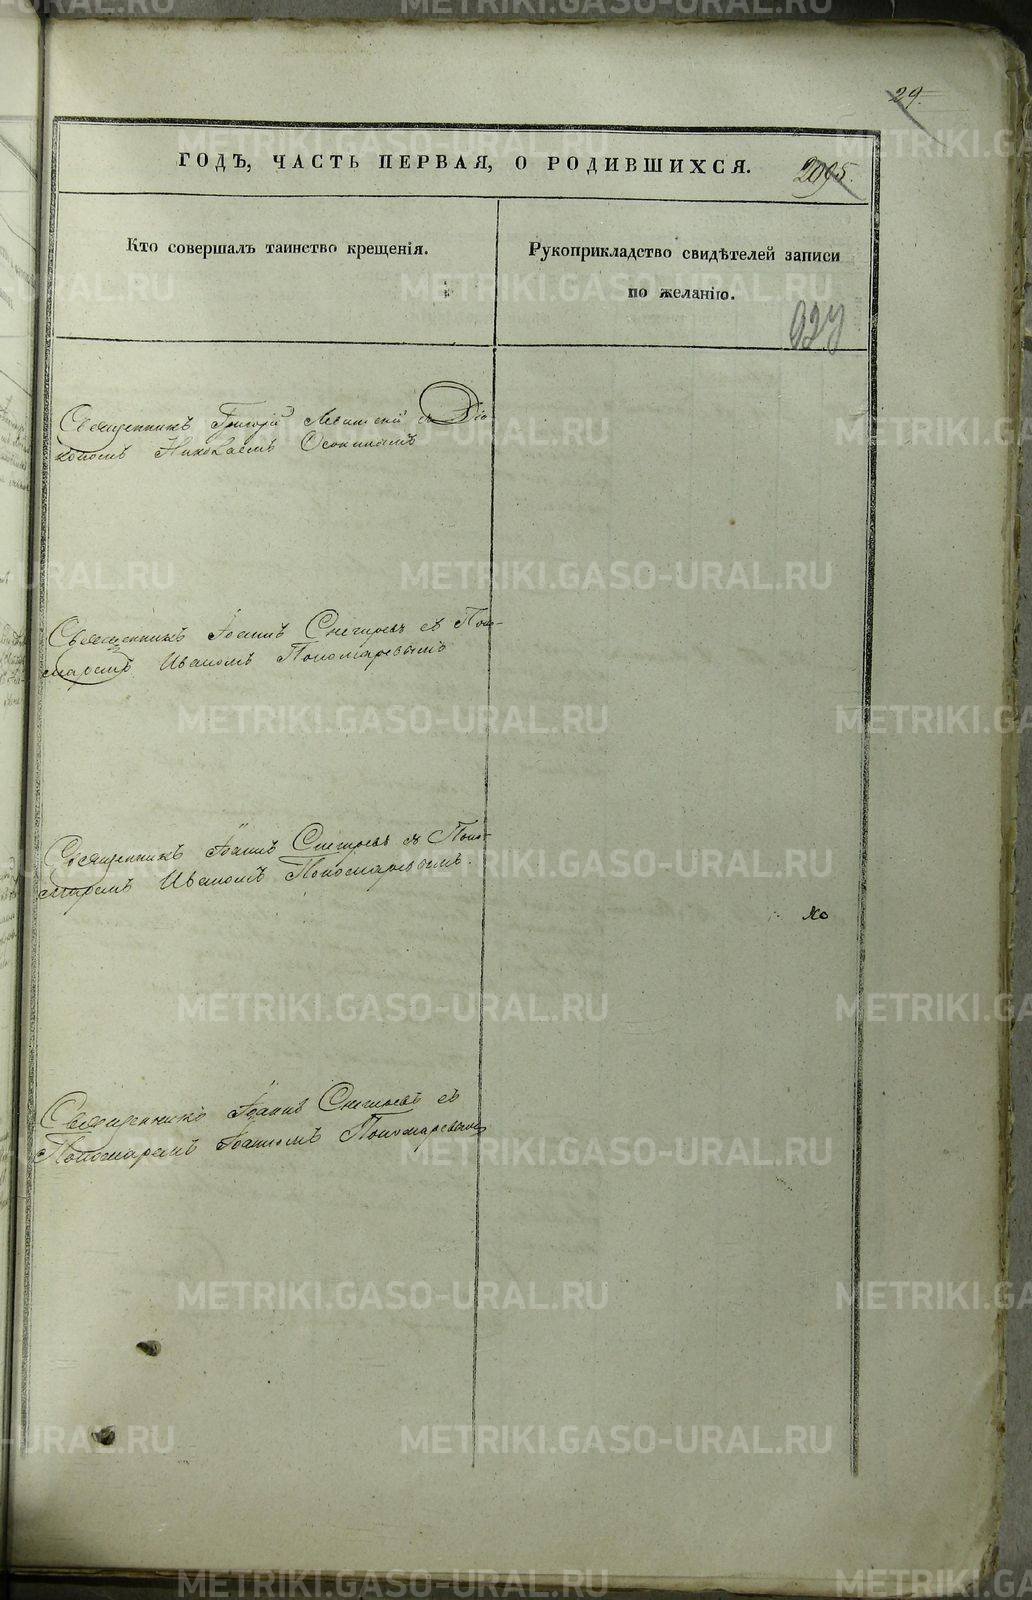 29.
ГОДЪ, ЧАСТЬ ПЕРВАЯ, О РОДИВШИХСЯ. 2095.
Кто совершалъ таинство крещенія.
Рукоприкладство свидѣтелей записи
по желанію.
927
Священникъ Григорій Левитскій съ Діа-
кономъ Николаемъ Осокинымъ
Священникъ Іоаннъ Снегиревъ съ Поно-
маремъ Иваномъ Пономаревымъ
Священникъ Іоаннъ Снегиревъ съ Поно-
маремъ Иваномъ Пономаревымъ.
Священникъ Іоаннъ Снегиревъ съ
Пономаремъ Іоанномъ Пономаревымъ
METRIKI.GASO-URAL.RU